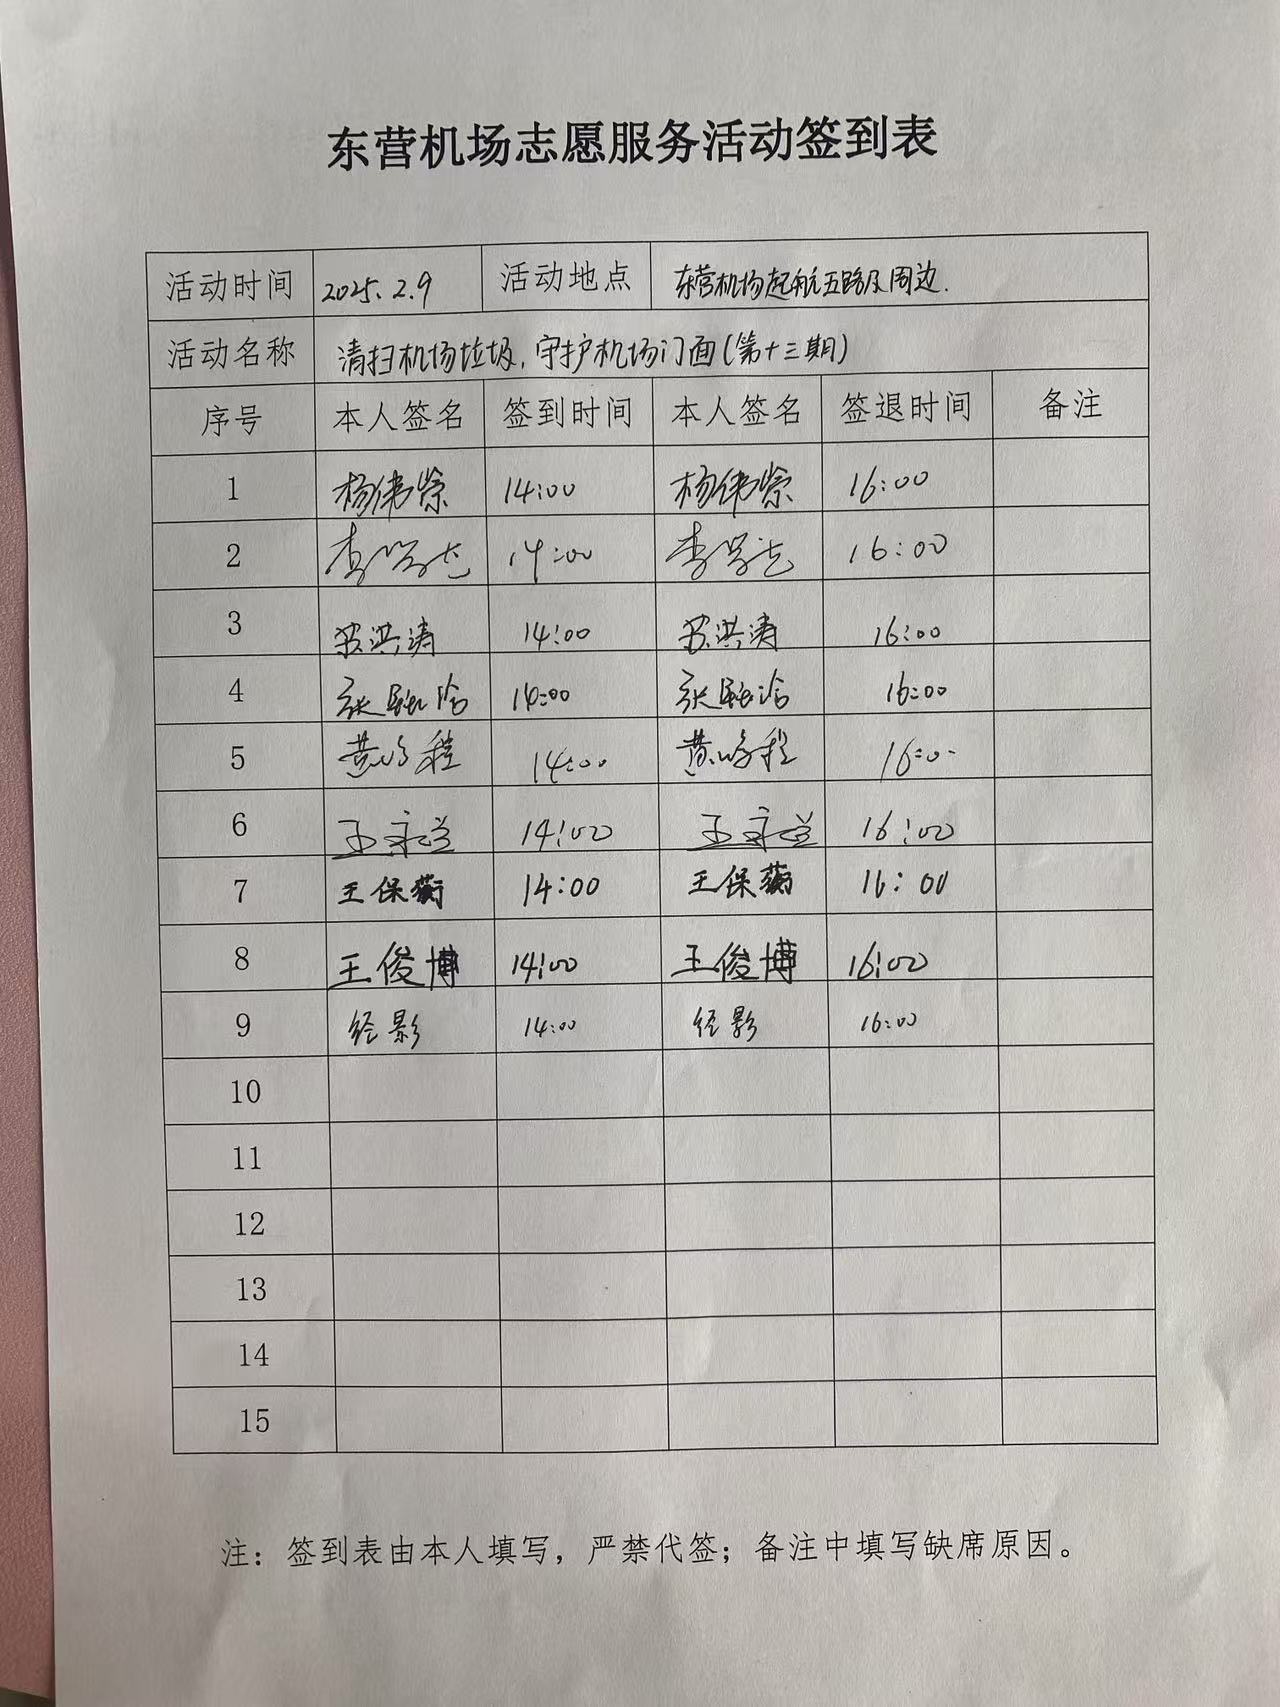 东营机场志愿服务活动签到表
活动时间 2025.2.9 活动地点 东营机场起航五路及周边.
活动名称 清扫机场垃圾,守护机场门面(第十三期)
序号 本人签名 签到时间 本人签名 签退时间 备注
1 杨伟崇 14:00 杨伟崇 16:00
2 14:00 16:00
3 洪涛 14:00 洪涛 16:00
4 张 14:00 张 16:00
5 黄 程 14:00 黄 程 16:0
6 王 14:00 王 16:00
7 王保蘅 14:00 王保蘅 16:00
8 王俊博 14:00 王俊博 16:00
9 经影 14:00 经影 16:00
10
11
12
13
14
15
注：签到表由本人填写，严禁代签；备注中填写缺席原因。